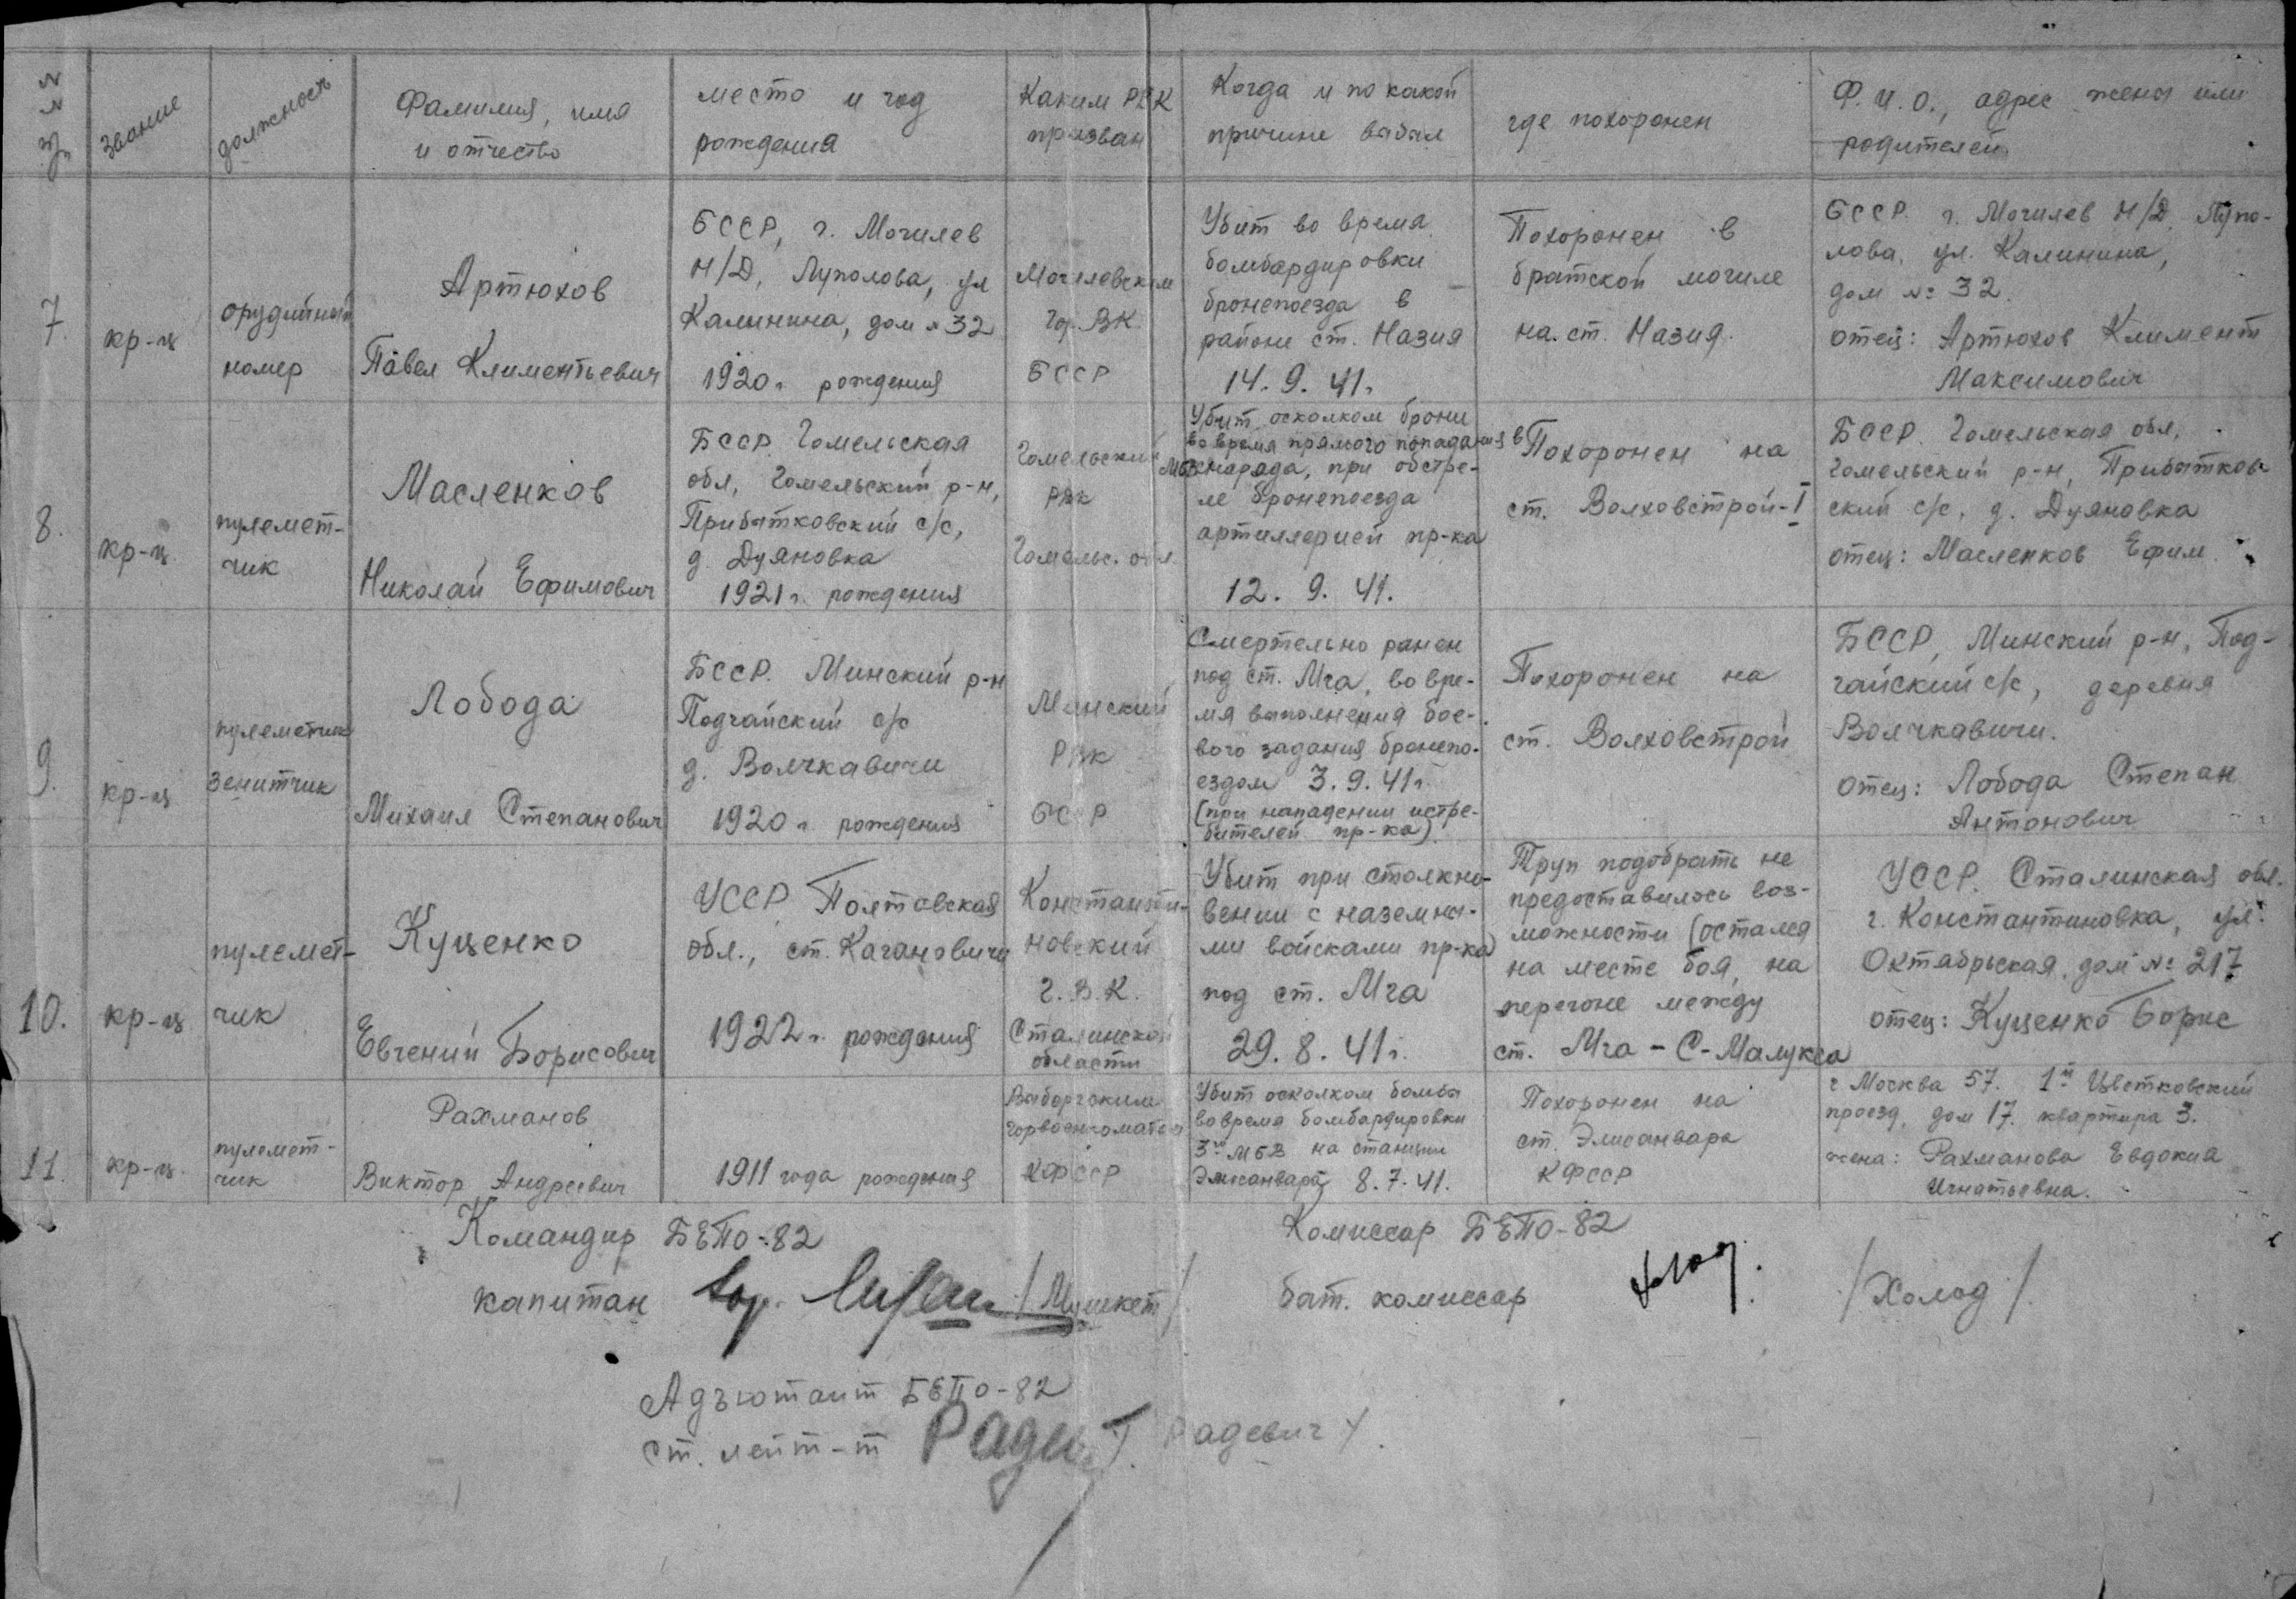 №№ пп
Звание
должность
Фамилия, имя
и отчество
место и год
рождения
Каким РВК
призван
Когда и по какой
причине выбыл
где похоронен
Ф.И.О., адрес жены или
родителей
7.
кр-ц
орудийный
номер
Артюхов
Павел Климентьевич
БССР, г. Могилев
Н/Д, Луполова, ул
Калинина, дом №32
1920г. рождения
Могилевским
Гор. ВК
БССР
Убит во время
бомбардировки
бронепоезда в
районе ст. Назия
14. 9. 41г.
Похоронен в
братской могиле
на ст. Назия.
БССР. г. Могилев Н/Д Лупо-
лова, ул. Калинина,
дом № 32.
отец: Артюхов Климент
Максимович
8.
кр-ц.
пулемет-
чик
Масленков
Николай Ефимович
БССР Гомельская
обл, Гомельский р-н,
Прибытковский с/с,
д. Дуяновка
1921г. рождения
Гомельский
РВК
Гомельс. обл
Убит осколком брони
во время прямого попадания в
МБВ снаряда, при обстре-
ле бронепоезда
артиллерией пр-ка
12. 9. 41.
Похоронен на
ст. Волховстрой-I
БССР. Гомельская обл,
Гомельский р-н, Прибытков
ский с/с, д. Дуяновка
отец: Масленков Ефим
9.
кр-ц
пулеметчик
зенитчик
Лобода
Михаил Степанович
БССР. Минский р-н
Подгайский с/с
д. Волчкавичи
1920г. рождения
Минский
РВК
БССР
Смертельно ранен
под ст. Мга, во вре-
мя выполнения бое-
вого задания бронепо-
ездом 3.9.41г.
(при нападении истре-
бителей пр-ка)
Похоронен на
ст. Волховстрой
БССР, Минский р-н, Под-
гайский с/с, деревня
Волчкавичи.
отец: Лобода Степан
Антонович
10.
кр-ц
пулемет-
чик
Куценко
Евгений Борисович
УССР Полтавская
обл., ст. Кагановичи
1922г. рождения
Константи-
новский
Г.В.К.
Сталинской
области
Убит при столкно-
вении с наземны-
ми войсками пр-ка
под ст. Мга
29. 8. 41г.
Труп подобрать не
предоставилось воз-
можности (остался
на месте боя, на
перегоне между
ст. Мга - С-Малукса
УССР. Сталинская обл.
г. Константиновка, ул.
Октябрьская, дом № 217
отец: Куценко Борис
11.
кр-ц.
пулемет-
чик
Рахманов
Виктор Андреевич
1911 года рождения
Выборгским
горвоенкоматом
КФССР
Убит осколком бомбы
во время бомбардировки
3го МБВ на станции
Элисенвара, 8.7.41.
Похоронен на
ст. Элисанвара
КФССР
г Москва 57. 1й Цветковский
проезд, дом 17. квартира 3.
жена: Рахманова Евдокия
Игнатьевна.
Командир БЕПО-82
Комиссар БЕПО-82
капитан /Мушкет/
бат. комиссар Холод. /Холод/
Адъютант БЕПО-82
ст. лейт-т Радев /Радевич/.